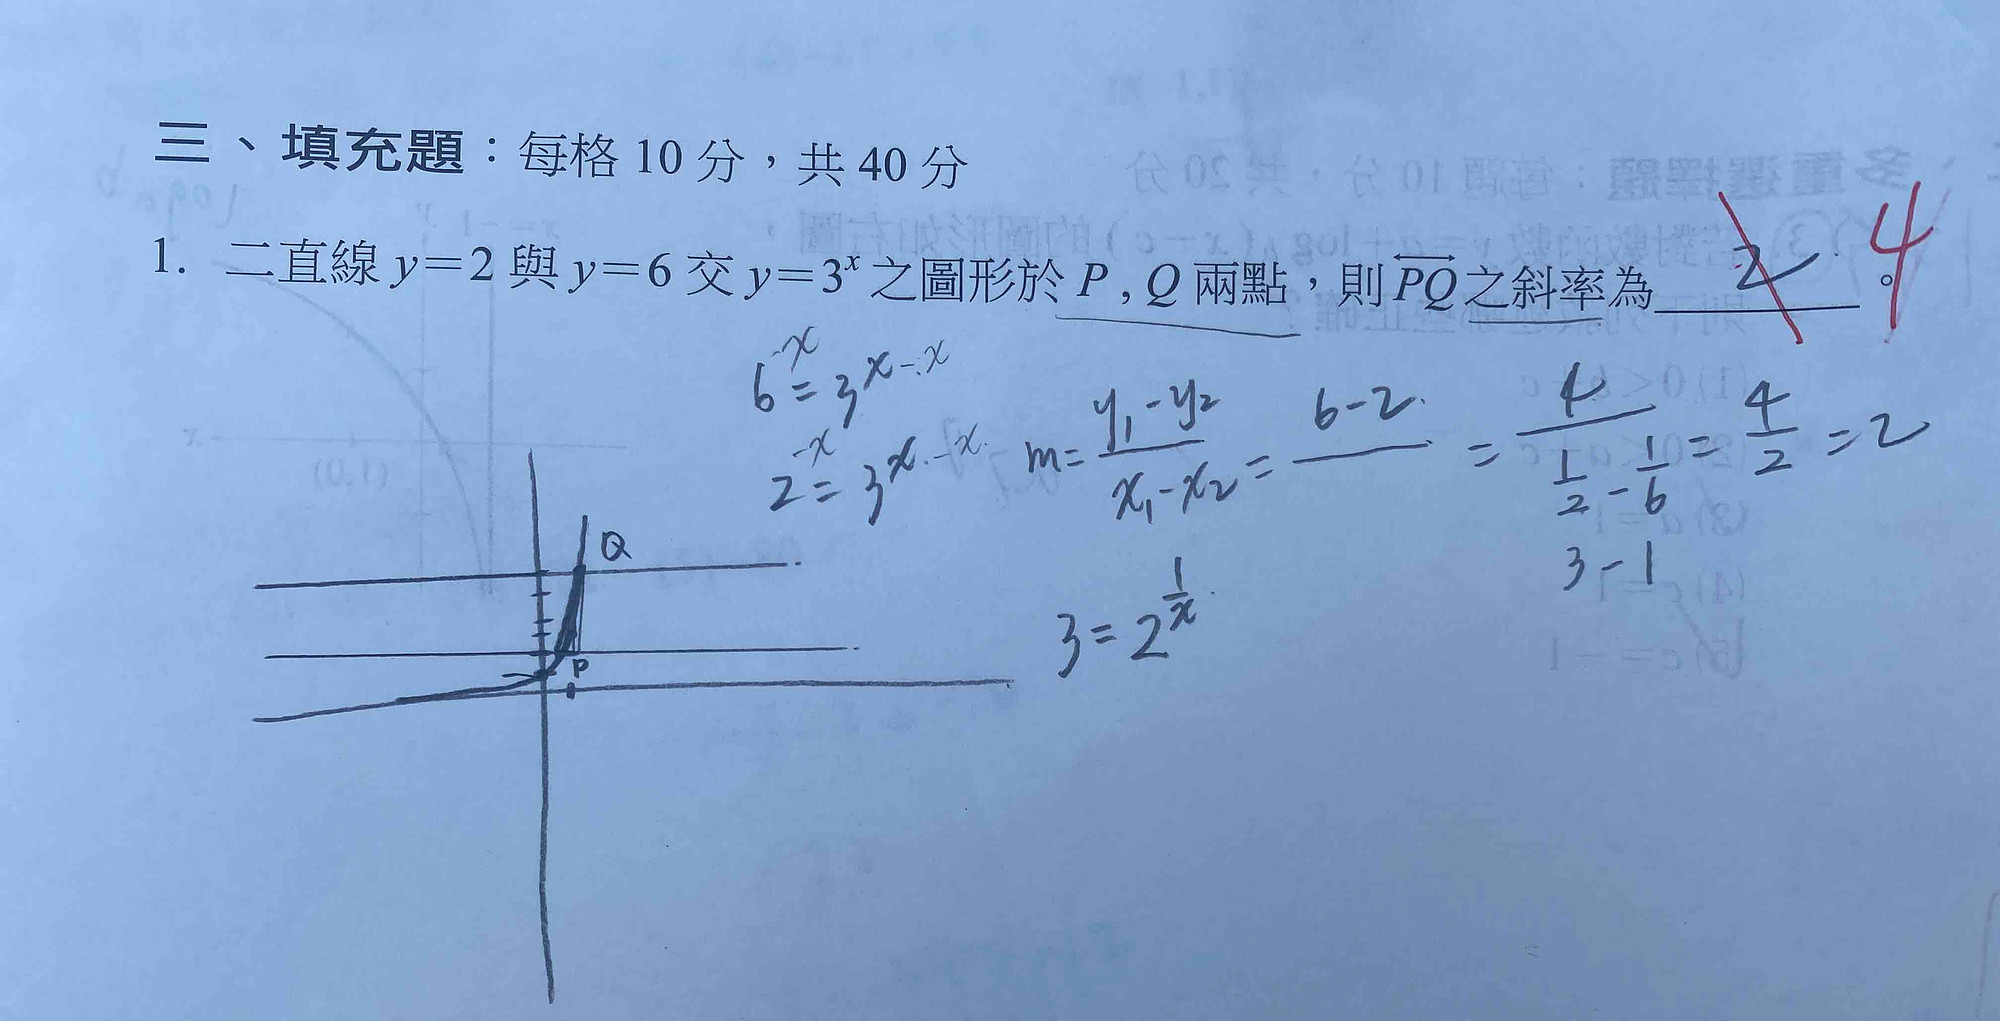 三、填充題：每格 10 分，共 40 分
1. 二直線 y=2 與 y=6 交 y=3^x 之圖形於 P , Q 兩點，則 \overleftrightarrow{PQ} 之斜率為 2 。 4
6^{-x} = 3^{x-x}
2^{-x} = 3^{x·-x}
m = \frac{y₁-y₂}{x₁-x₂} = \frac{6-2}{} = \frac{4}{\frac{1}{2}-\frac{1}{6}} = \frac{4}{2} = 2
3-1
3 = 2^{\frac{1}{x}}
Q
P